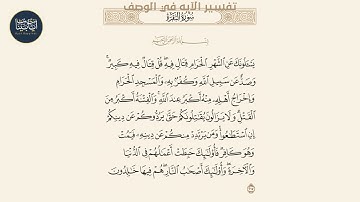 تفسير الآية في الوصف
سُورَةُ البَقَرَةِ
بِسْمِ اللَّهِ الرَّحْمَٰنِ الرَّحِيمِ
يَسْـَٔلُونَكَ عَنِ ٱلشَّهْرِ ٱلْحَرَامِ قِتَالٍ فِيهِ ۖ قُلْ قِتَالٌ فِيهِ كَبِيرٌ ۖ
وَصَدٌّ عَن سَبِيلِ ٱللَّهِ وَكُفْرٌۢ بِهِۦ وَٱلْمَسْجِدِ ٱلْحَرَامِ
وَإِخْرَاجُ أَهْلِهِۦ مِنْهُ أَكْبَرُ عِندَ ٱللَّهِ ۚ وَٱلْفِتْنَةُ أَكْبَرُ مِنَ
ٱلْقَتْلِ ۗ وَلَا يَزَالُونَ يُقَـٰتِلُونَكُمْ حَتَّىٰ يَرُدُّوكُمْ عَن دِينِكُمْ
إِنِ ٱسْتَطَـٰعُوا۟ ۚ وَمَن يَرْتَدِدْ مِنكُمْ عَن دِينِهِۦ فَيَمُتْ
وَهُوَ كَافِرٌ فَأُو۟لَـٰٓئِكَ حَبِطَتْ أَعْمَـٰلُهُمْ فِى ٱلدُّنْيَا
وَٱلْـَٔاخِرَةِ ۖ وَأُو۟لَـٰٓئِكَ أَصْحَـٰبُ ٱلنَّارِ ۖ هُمْ فِيهَا خَـٰلِدُونَ